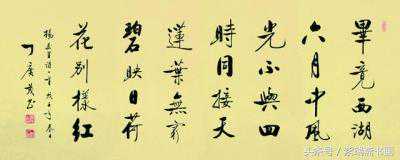 畢竟西湖
六月中風
光不與四
時同接天
蓮葉無窮
碧映日荷
花別樣紅
楊萬里詩一首
头条号